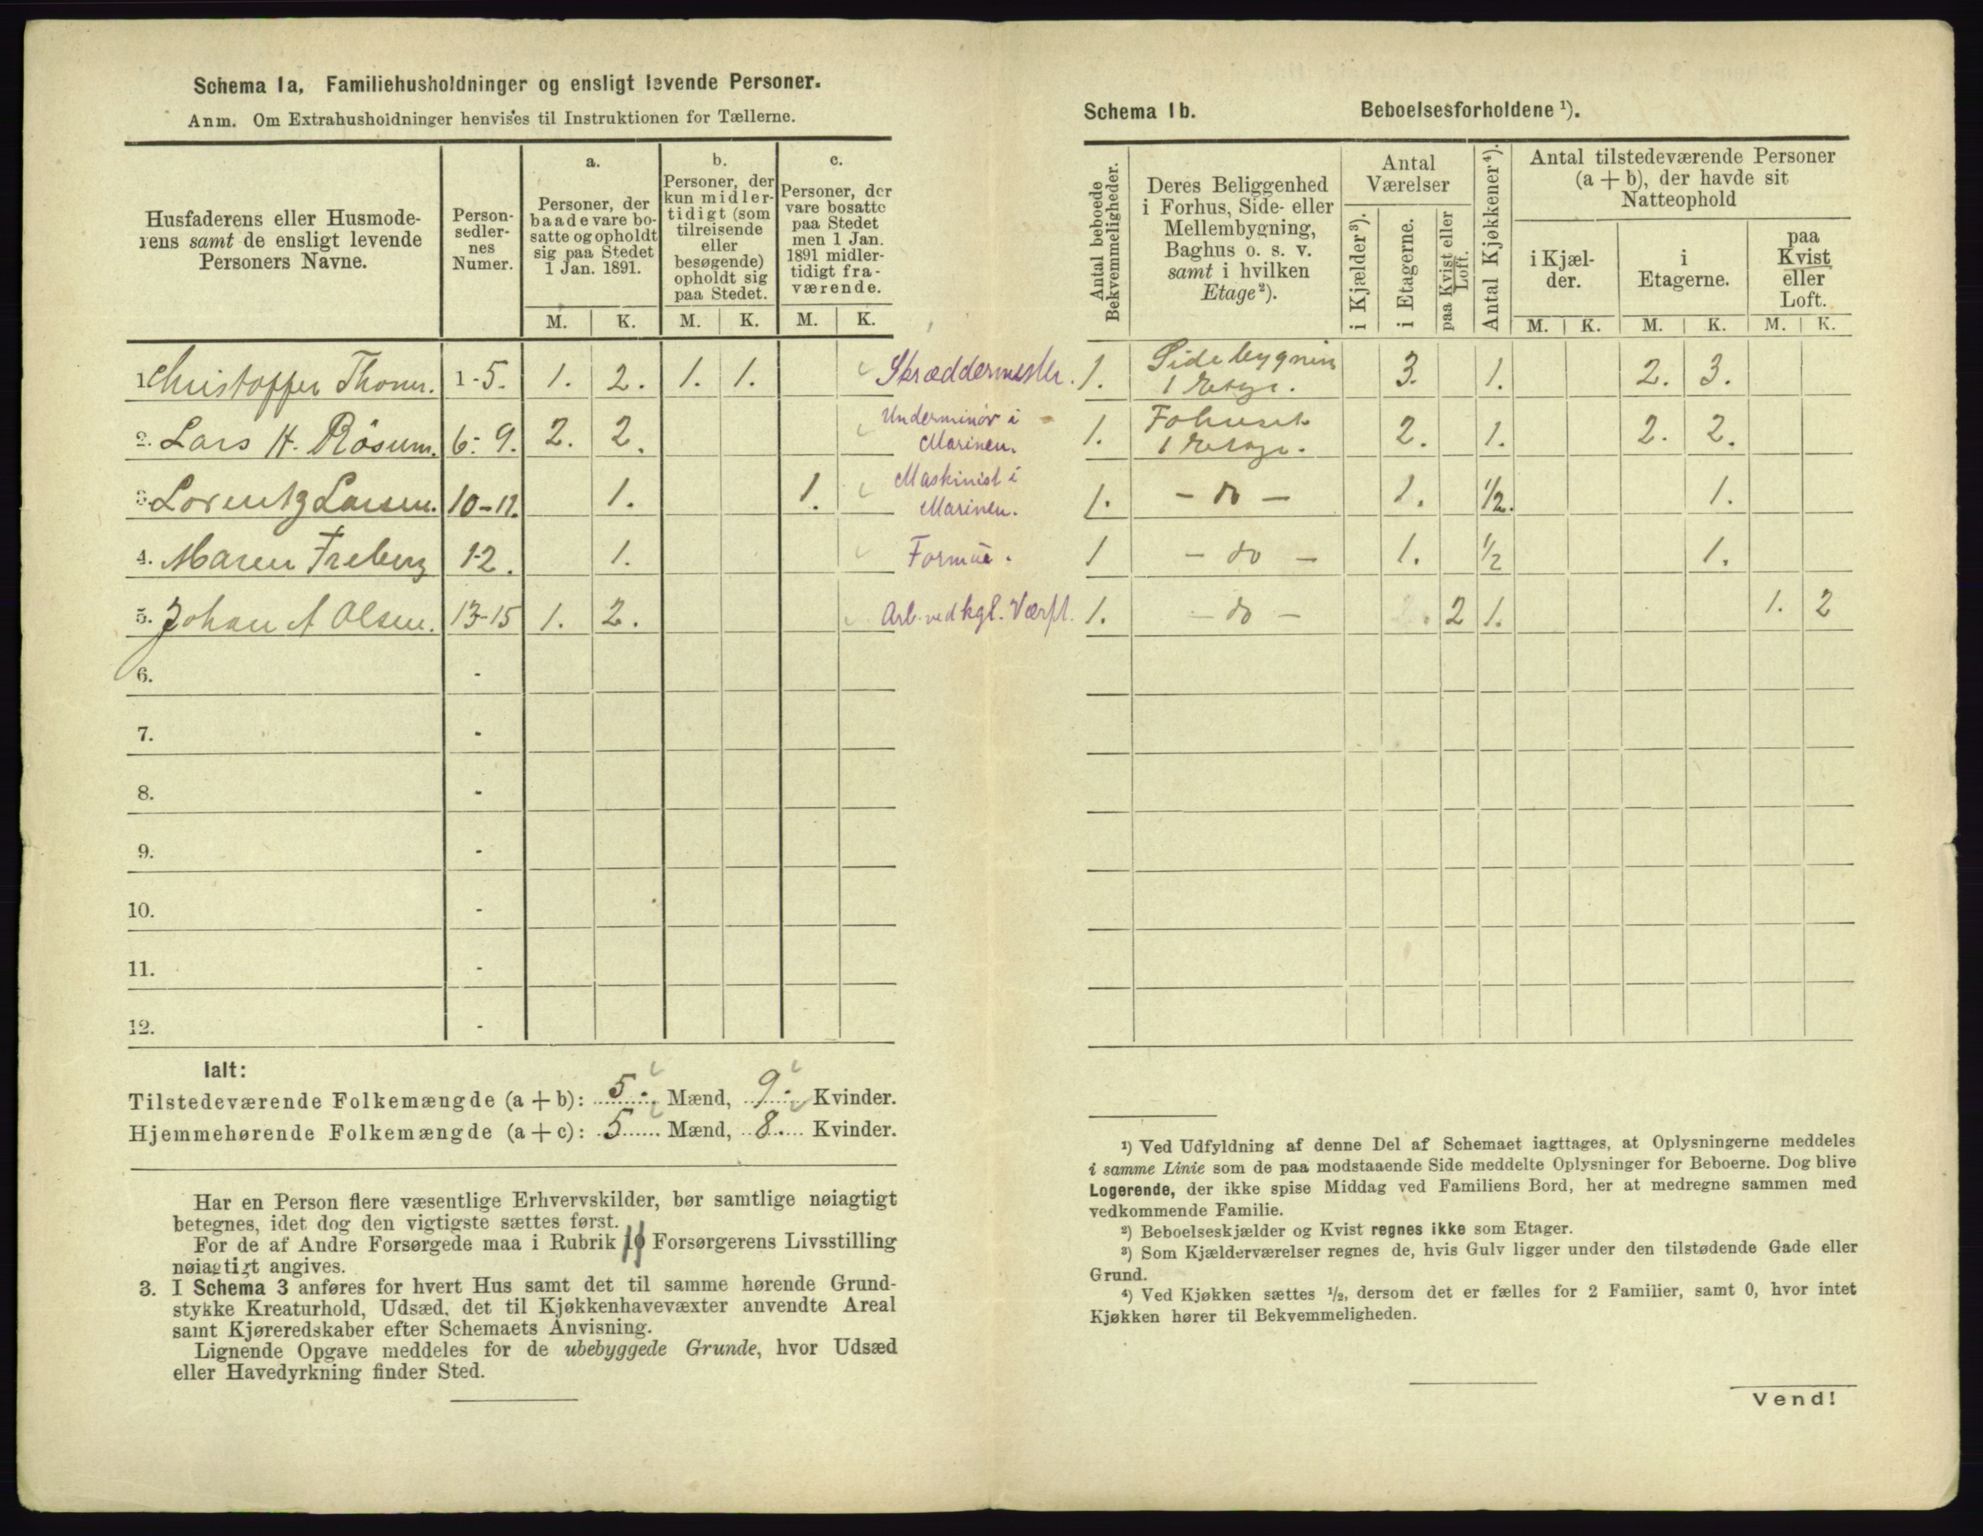 Schema 1a, Familiehusholdninger og ensligt levende Personer.
Anm. Om Extrahusholdninger henvises til Instruktionen for Tællerne.
Husfaderens eller Husmoderens samt de ensligt levende Personers Navne.
Personsedlernes Numer.
a.
Personer, der baade vare bosatte og opholdt sig paa Stedet 1 Jan. 1891.
b.
Personer, der kun midlertidigt (som tilreisende eller besøgende) opholdt sig paa Stedet.
c.
Personer, der vare bosatte paa Stedet men 1 Jan. 1891 midlertidigt fraværende.
M. K. M. K. M. K.
1. Christopffer Thom. 1-5. 1. 2. 1. 1. Skræddermester.
2. Lars H. Røsum. 6-9. 2. 2. Underminør i Marinen.
3. Lorentz Larsen. 10-11. 1. 1. Maskinist i Marinen.
4. Maren Freberg 12. 1. Formue.
5. Johan A Olsen. 13-15 1. 2. Arb. ved kgl. Værft.
6. -
7. -
8. -
9. -
10. -
11. -
12. -
Ialt:
Tilstedeværende Folkemængde (a + b): 5. Mænd, 9. Kvinder.
Hjemmehørende Folkemængde (a + c): 5 Mænd, 8. Kvinder.
Har en Person flere væsentlige Erhvervskilder, bør samtlige nøiagtigt
betegnes, idet dog den vigtigste sættes først.
For de af Andre Forsørgede maa i Rubrik 10 Forsørgerens Livsstilling
nøiagtigt angives.
3. I Schema 3 anføres for hvert Hus samt det til samme hørende Grund-
stykke Kreaturhold, Udsæd, det til Kjøkkenhavevæxter anvendte Areal
samt Kjøreredskaber efter Schemaets Anvisning.
Lignende Opgave meddeles for de ubebyggede Grunde, hvor Udsæd
eller Havedyrkning finder Sted.
Schema 1b. Beboelsesforholdene ¹).
Antal beboede Bekvemmeligheder.
Deres Beliggenhed i Forhus, Side- eller Mellembygning, Baghus o. s. v. samt i hvilken Etage²).
Antal Værelser
i Kjælder³).
i Etagerne.
paa Kvist eller Loft.
Antal Kjøkkener⁴).
Antal tilstedeværende Personer (a + b), der havde sit Natteophold
i Kjælder.
i Etagerne.
paa Kvist eller Loft.
M. K. M. K. M. K.
1. Sidebygnin 1 Etage. 3. 1. 2. 3.
1. Fohuset 1 Etage. 2. 1. 2. 2.
1. - do - 1. 1/2. 1.
1 - do - 1. 1/2 1.
1. - do - 2 1. 1. 2
¹) Ved Udfyldning af denne Del af Schemaet iagttages, at Oplysningerne meddeles
i samme Linie som de paa modstaaende Side meddelte Oplysninger for Beboerne. Dog blive
Logerende, der ikke spise Middag ved Familiens Bord, her at medregne sammen med
vedkommende Familie.
²) Beboelseskjælder og Kvist regnes ikke som Etager.
³) Som Kjælderværelser regnes de, hvis Gulv ligger under den tilstødende Gade eller
Grund.
⁴) Ved Kjøkken sættes 1/2, dersom det er fælles for 2 Familier, samt 0, hvor intet
Kjøkken hører til Bekvemmeligheden.
Vend!